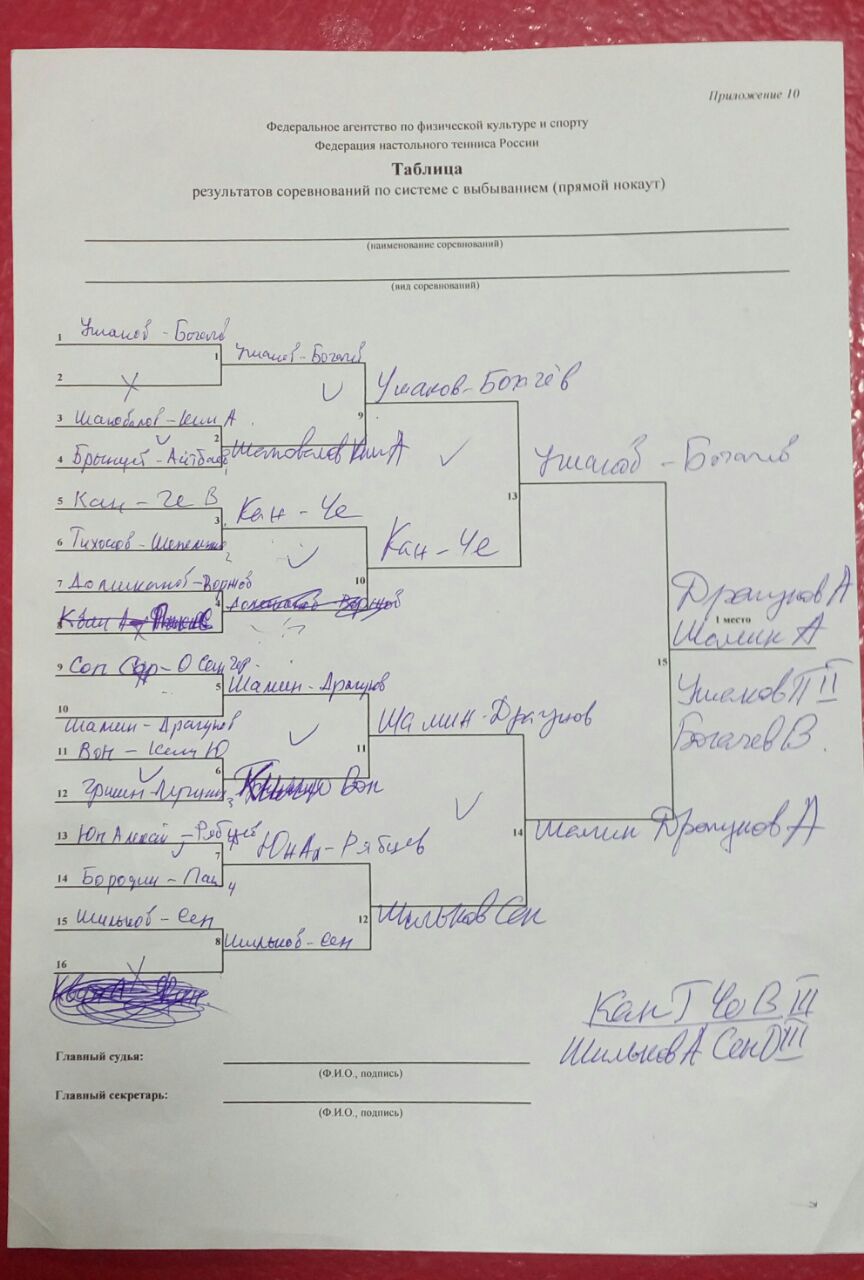 Приложение 10
Федеральное агентство по физической культуре и спорту
Федерация настольного тенниса России
Таблица
результатов соревнований по системе с выбыванием (прямой нокаут)
(наименование соревнований)
(вид соревнований)
1 Ушаков - Богачёв
1 Ушаков - Богачёв
2 X
Ушаков-Богачёв
9
3 Шаповалов - Ким А.
2 Шаповалов Ким А
4
Ушаков - Богачёв
13
5 Кан - Че В
3 Кан - Че
6 Тихонов -
2
Кан - Че
10
7 - Воржов
4
8
Драгунов А
1 место
Шамин А
15
9 Сон
5 Шамин - Драгунов
10
Ушаков П II
Шамин - Драгунов
Шамин-Драгунов
11
Богачев В.
11 Вон - Ким Ю
6 Вон
12 Гришин -
3
Шамин Драгунов А
14
13 Юн Алексей - Рябцев
7 Юн Ал - Рябцев
14 Бородин - Пак
4
15 Шильков - Сен
Шильков Сен
12
8 Шильков - Сен
16 X
Кан Г Че В III
Шильков А Сен О III
Главный судья:
(Ф.И.О., подпись)
Главный секретарь:
(Ф.И.О., подпись)